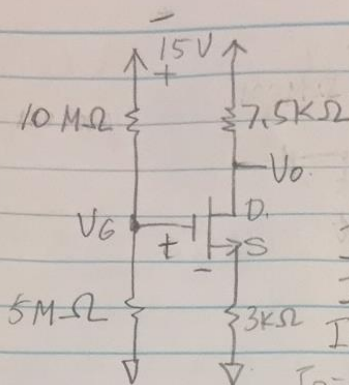 -
15V
+
10 MΩ
7.5KΩ
Vo
VG
D.
+
S
-
5MΩ
3KΩ
I